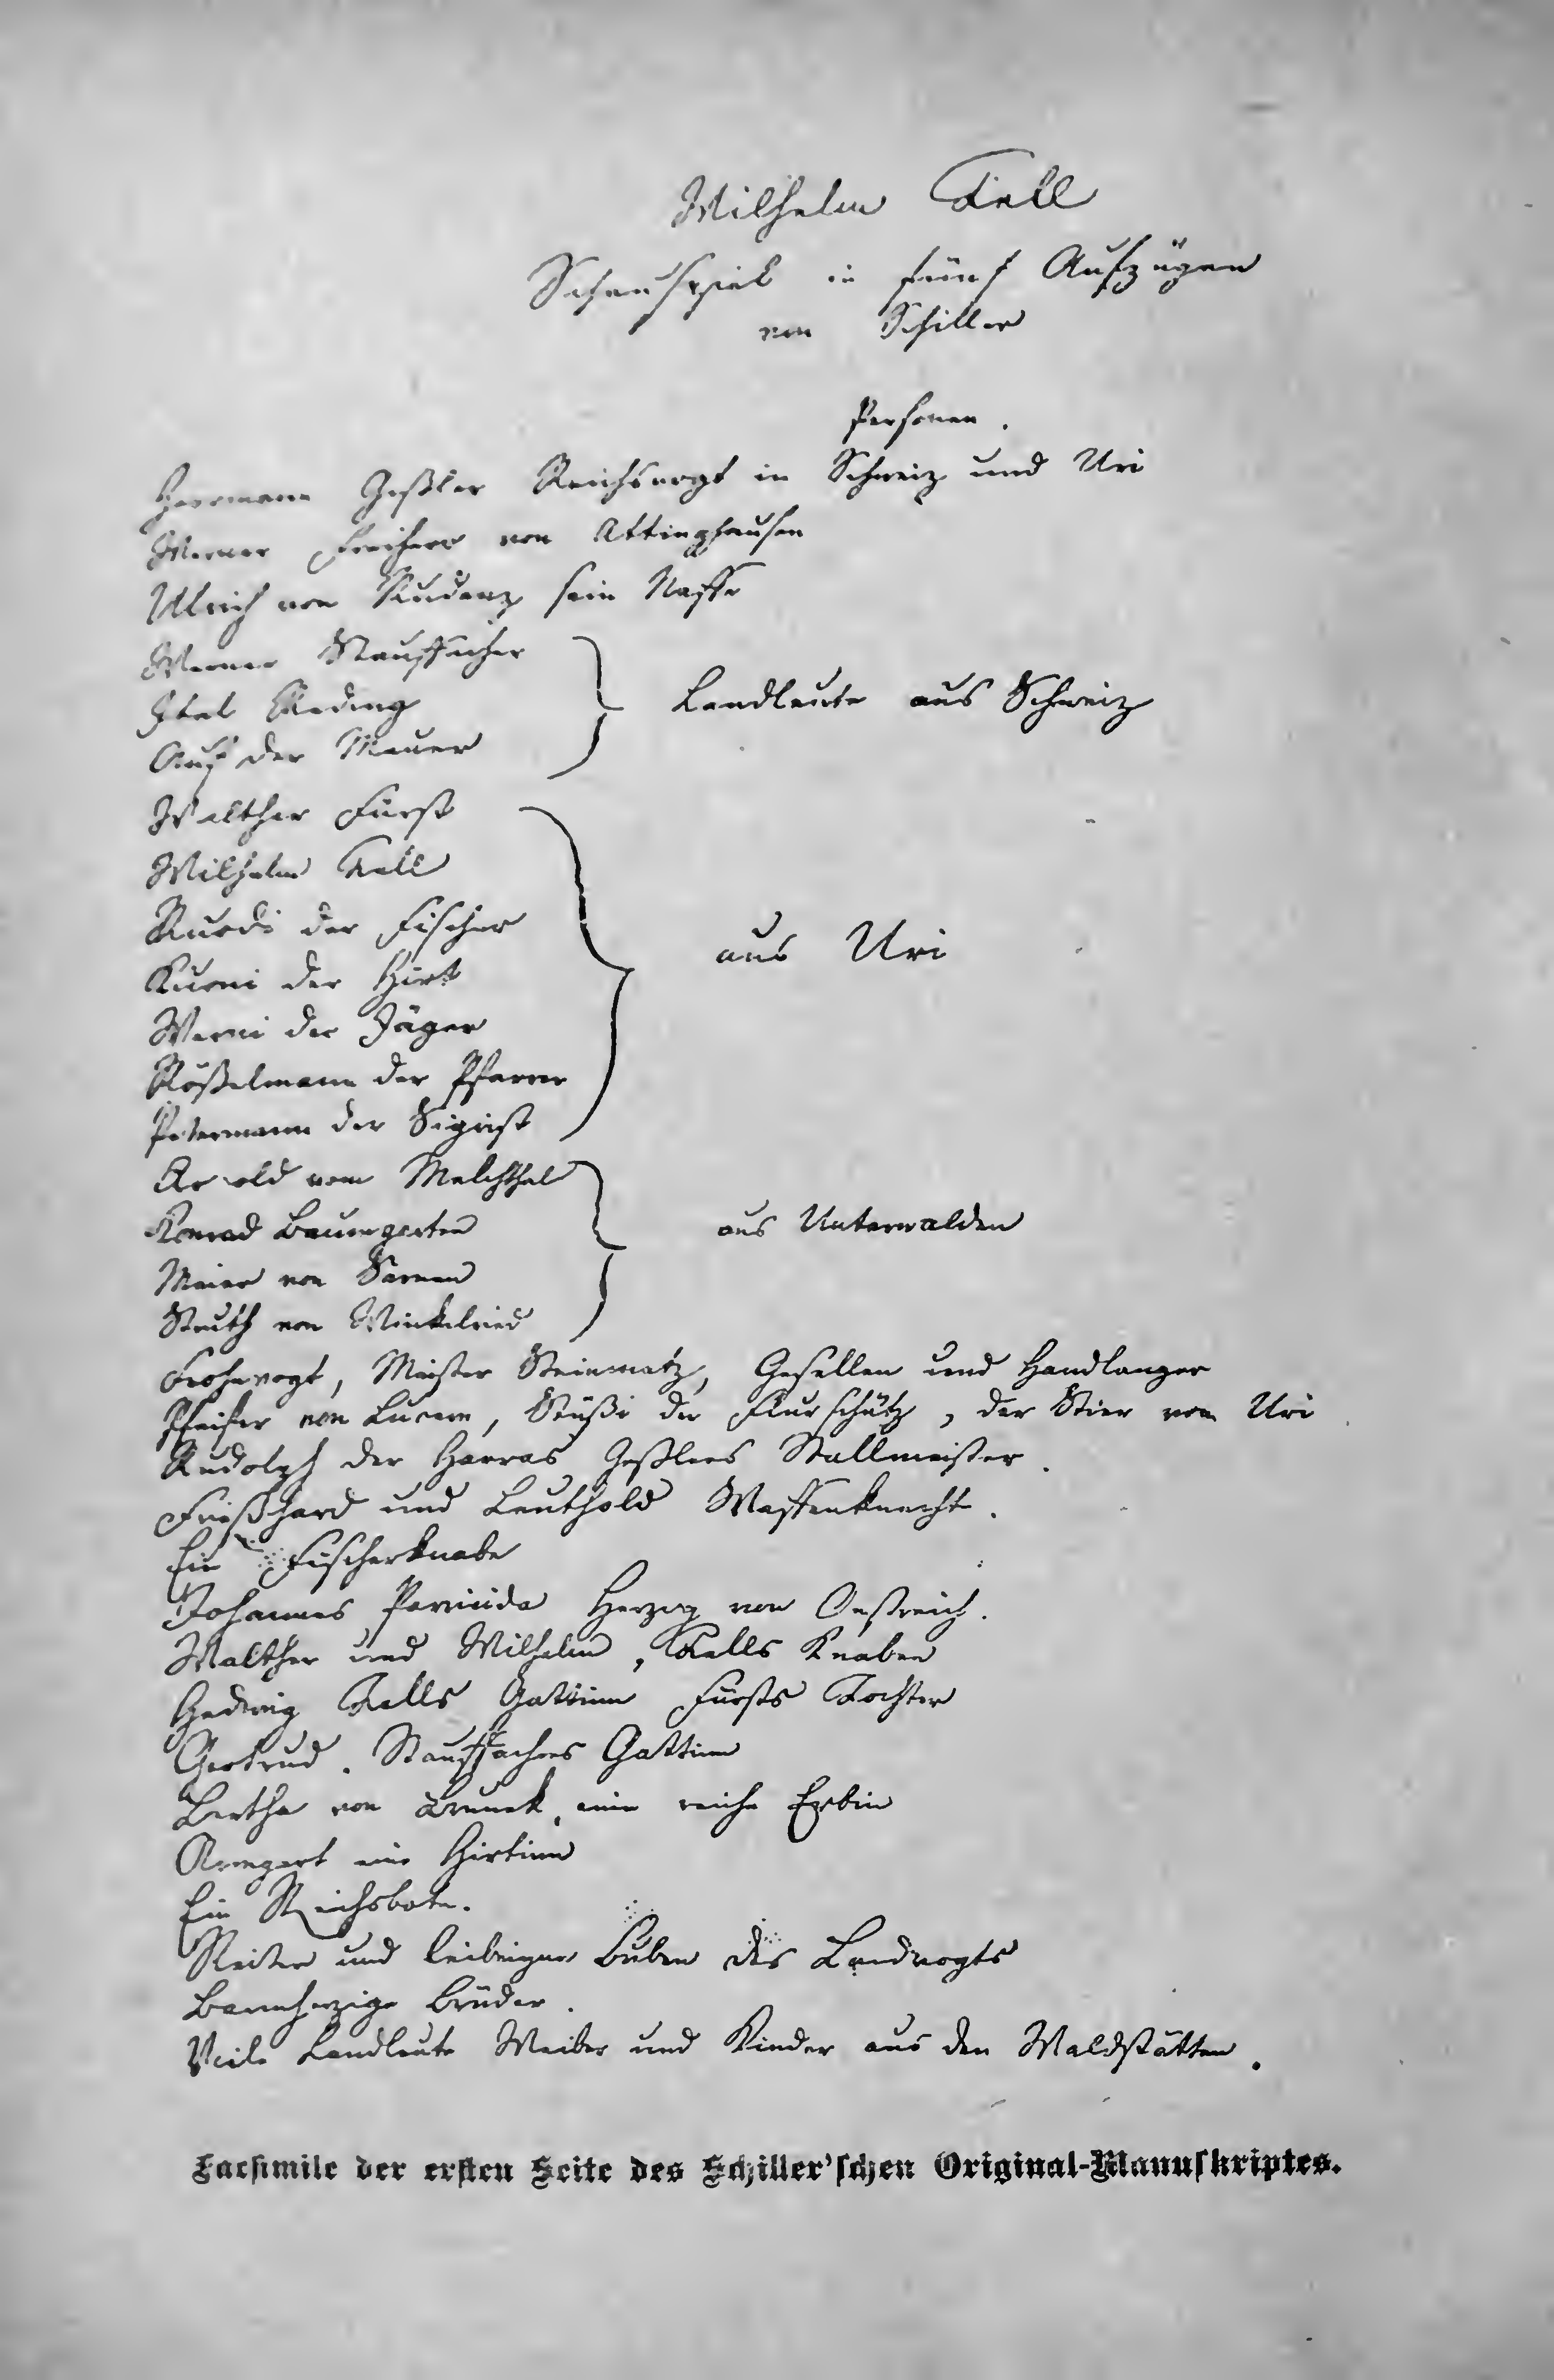 Wilhelm Tell
Schauspiel in fünf Aufzügen
von Schiller
Personen.
Herrmann Geßler Reichsvogt in Schweiz und Uri
Werner Freiherr von Attinghausen
Ulrich von Rudenz sein Neffe
Werner Stauffacher
Itel Reding
Auf der Mauer
Landleute aus Schweiz
Walther Fürst
Wilhelm Tell
Ruodi der Fischer
Kuoni der Hirt
Werni der Jäger
Rößelmann der Pfarrer
Petermann der Sigrist
aus Uri
Arnold vom Melchthal
Konrad Baumgarten
Meier von Sarnen
Struth von Winkelried
aus Unterwalden
Frohnvogt, Meister Steinmetz, Gesellen und Handlanger
Pfeifer von Lucern, Stüßi der Flurschütz, der Stier von Uri
Rudolph der Harras Geßlers Stallmeister.
Frießhard und Leuthold Waffenknecht.
Ein Fischerknabe
Johannes Parricida Herzog von Oestreich.
Walther und Wilhelm, Tells Knaben
Hedwig Tells Gattinn Fürsts Tochter
Gertrud. Stauffachers Gattinn
Bertha von Bruneck, eine reiche Erbin
Armgart eine Hirtinn
Ein Reichsbote.
Reiter und leibeigne Buben des Landvogts
Barmherzige Brüder.
Viele Landleute Weiber und Kinder aus den Waldstätten.
Facsimile der ersten Seite des Schiller'schen Original-Manuskriptes.